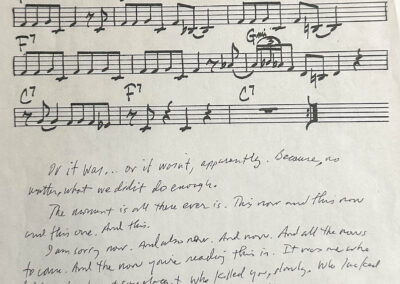 F7 Gmi
3
C7 F7 C7
Or it was... or it wasn't, apparently. Because, no
matter what we did it do enough.
The moment is all there ever is. This now and this now
and this one. And this.
I am sorry now. And also now. And now. And all the nows
to come. And the now you're reading this in. It was me who
Who killed you, slowly. Who lacked